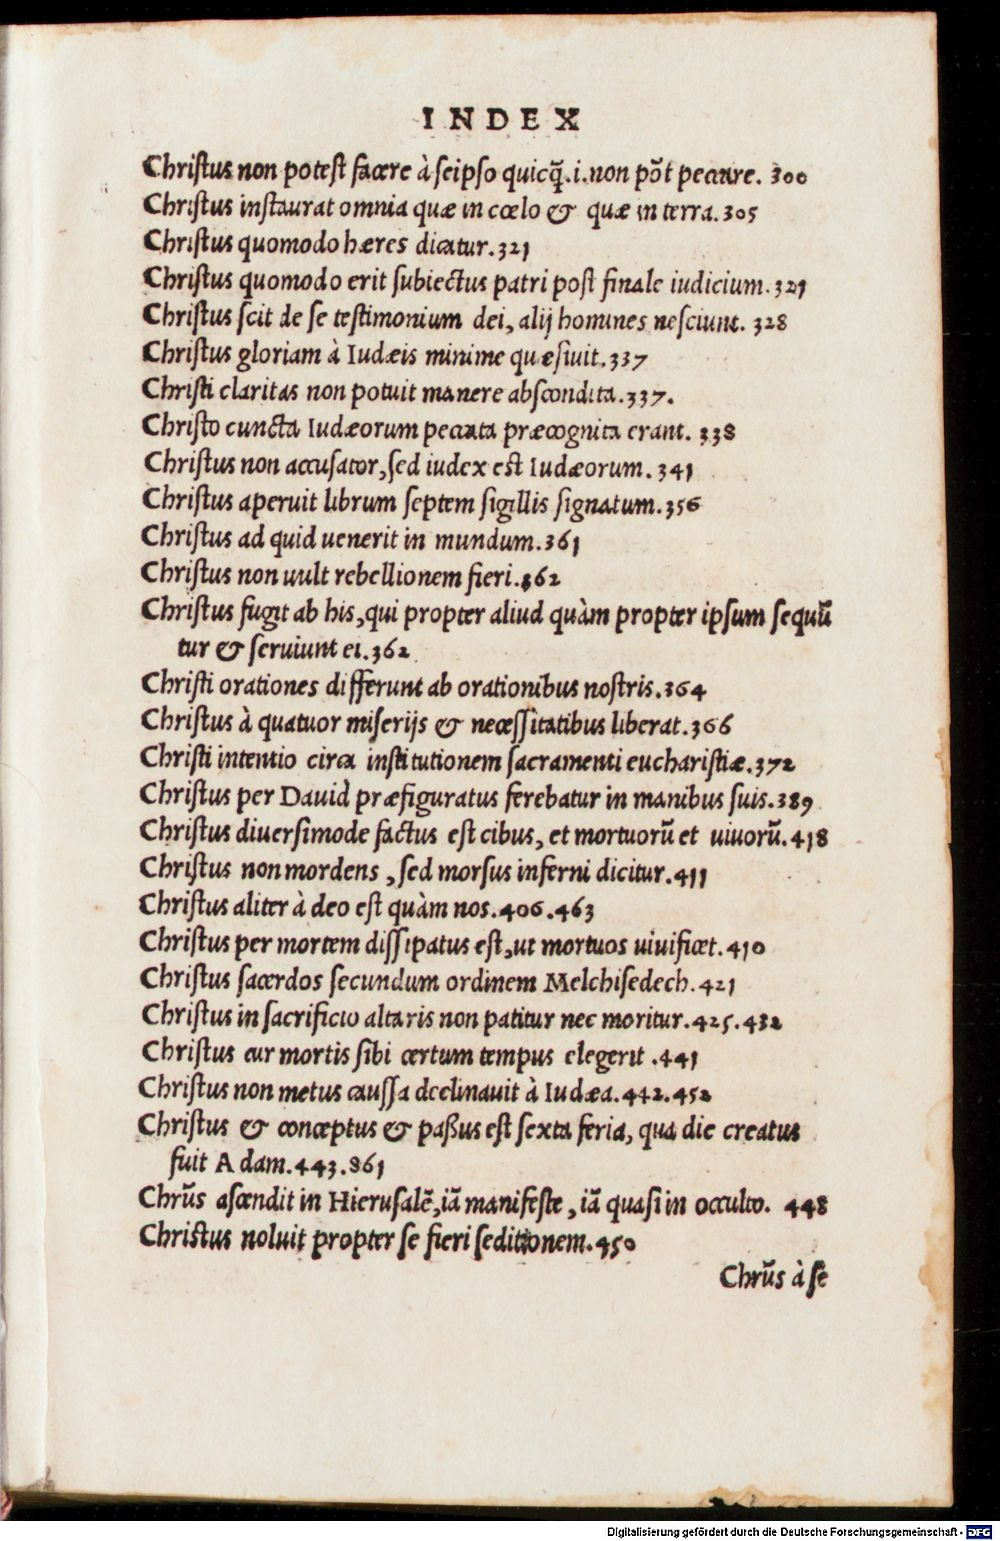 INDEX
Christus non potest facere à seipso quicq̃.i.non põt peccare. 300
Christus instaurat omnia quæ in cœlo & quæ in terra.305
Christus quomodo hæres dicatur.321
Christus quomodo erit subiectus patri post finale iudicium.321
Christus scit de se testimonium dei, alij homines nesciunt. 328
Christus gloriam à Iudæis minime quæsiuit.337
Christi claritas non potuit manere abscondita.337.
Christo cuncta Iudæorum peccata præcognita erant. 338
Christus non accusator,sed iudex est Iudæorum.341
Christus aperuit librum septem sigillis signatum.356
Christus ad quid uenerit in mundum.361
Christus non uult rebellionem fieri.362
Christus fugit ab his,qui propter aliud quàm propter ipsum sequũ
tur & seruiunt ei.362
Christi orationes differunt ab orationibus nostris.364
Christus à quatuor miserijs & necessitatibus liberat.366
Christi intentio circa institutionem sacramenti eucharistiæ.372
Christus per Dauid præfiguratus ferebatur in manibus suis.389
Christus diuersimode factus est cibus, et mortuorũ et uiuorũ.418
Christus non mordens , sed morsus inferni dicitur.411
Christus aliter à deo est quàm nos.406.463
Christus per mortem dissipatus est,ut mortuos uiuificet.410
Christus sacerdos secundum ordinem Melchisedech.421
Christus in sacrificio altaris non patitur nec moritur.425.432
Christus cur mortis sibi certum tempus elegerit .441
Christus non metus caussa declinauit à Iudæa.442.452
Christus & conceptus & paßus est sexta feria, qua die creatus
fuit Adam.443.861
Chrũs ascendit in Hierusalẽ,iã manifeste , iã quasi in occulto. 448
Christus noluit propter se fieri seditionem.450
Chrũs à se
Digitalisierung gefördert durch die Deutsche Forschungsgemeinschaft - DFG